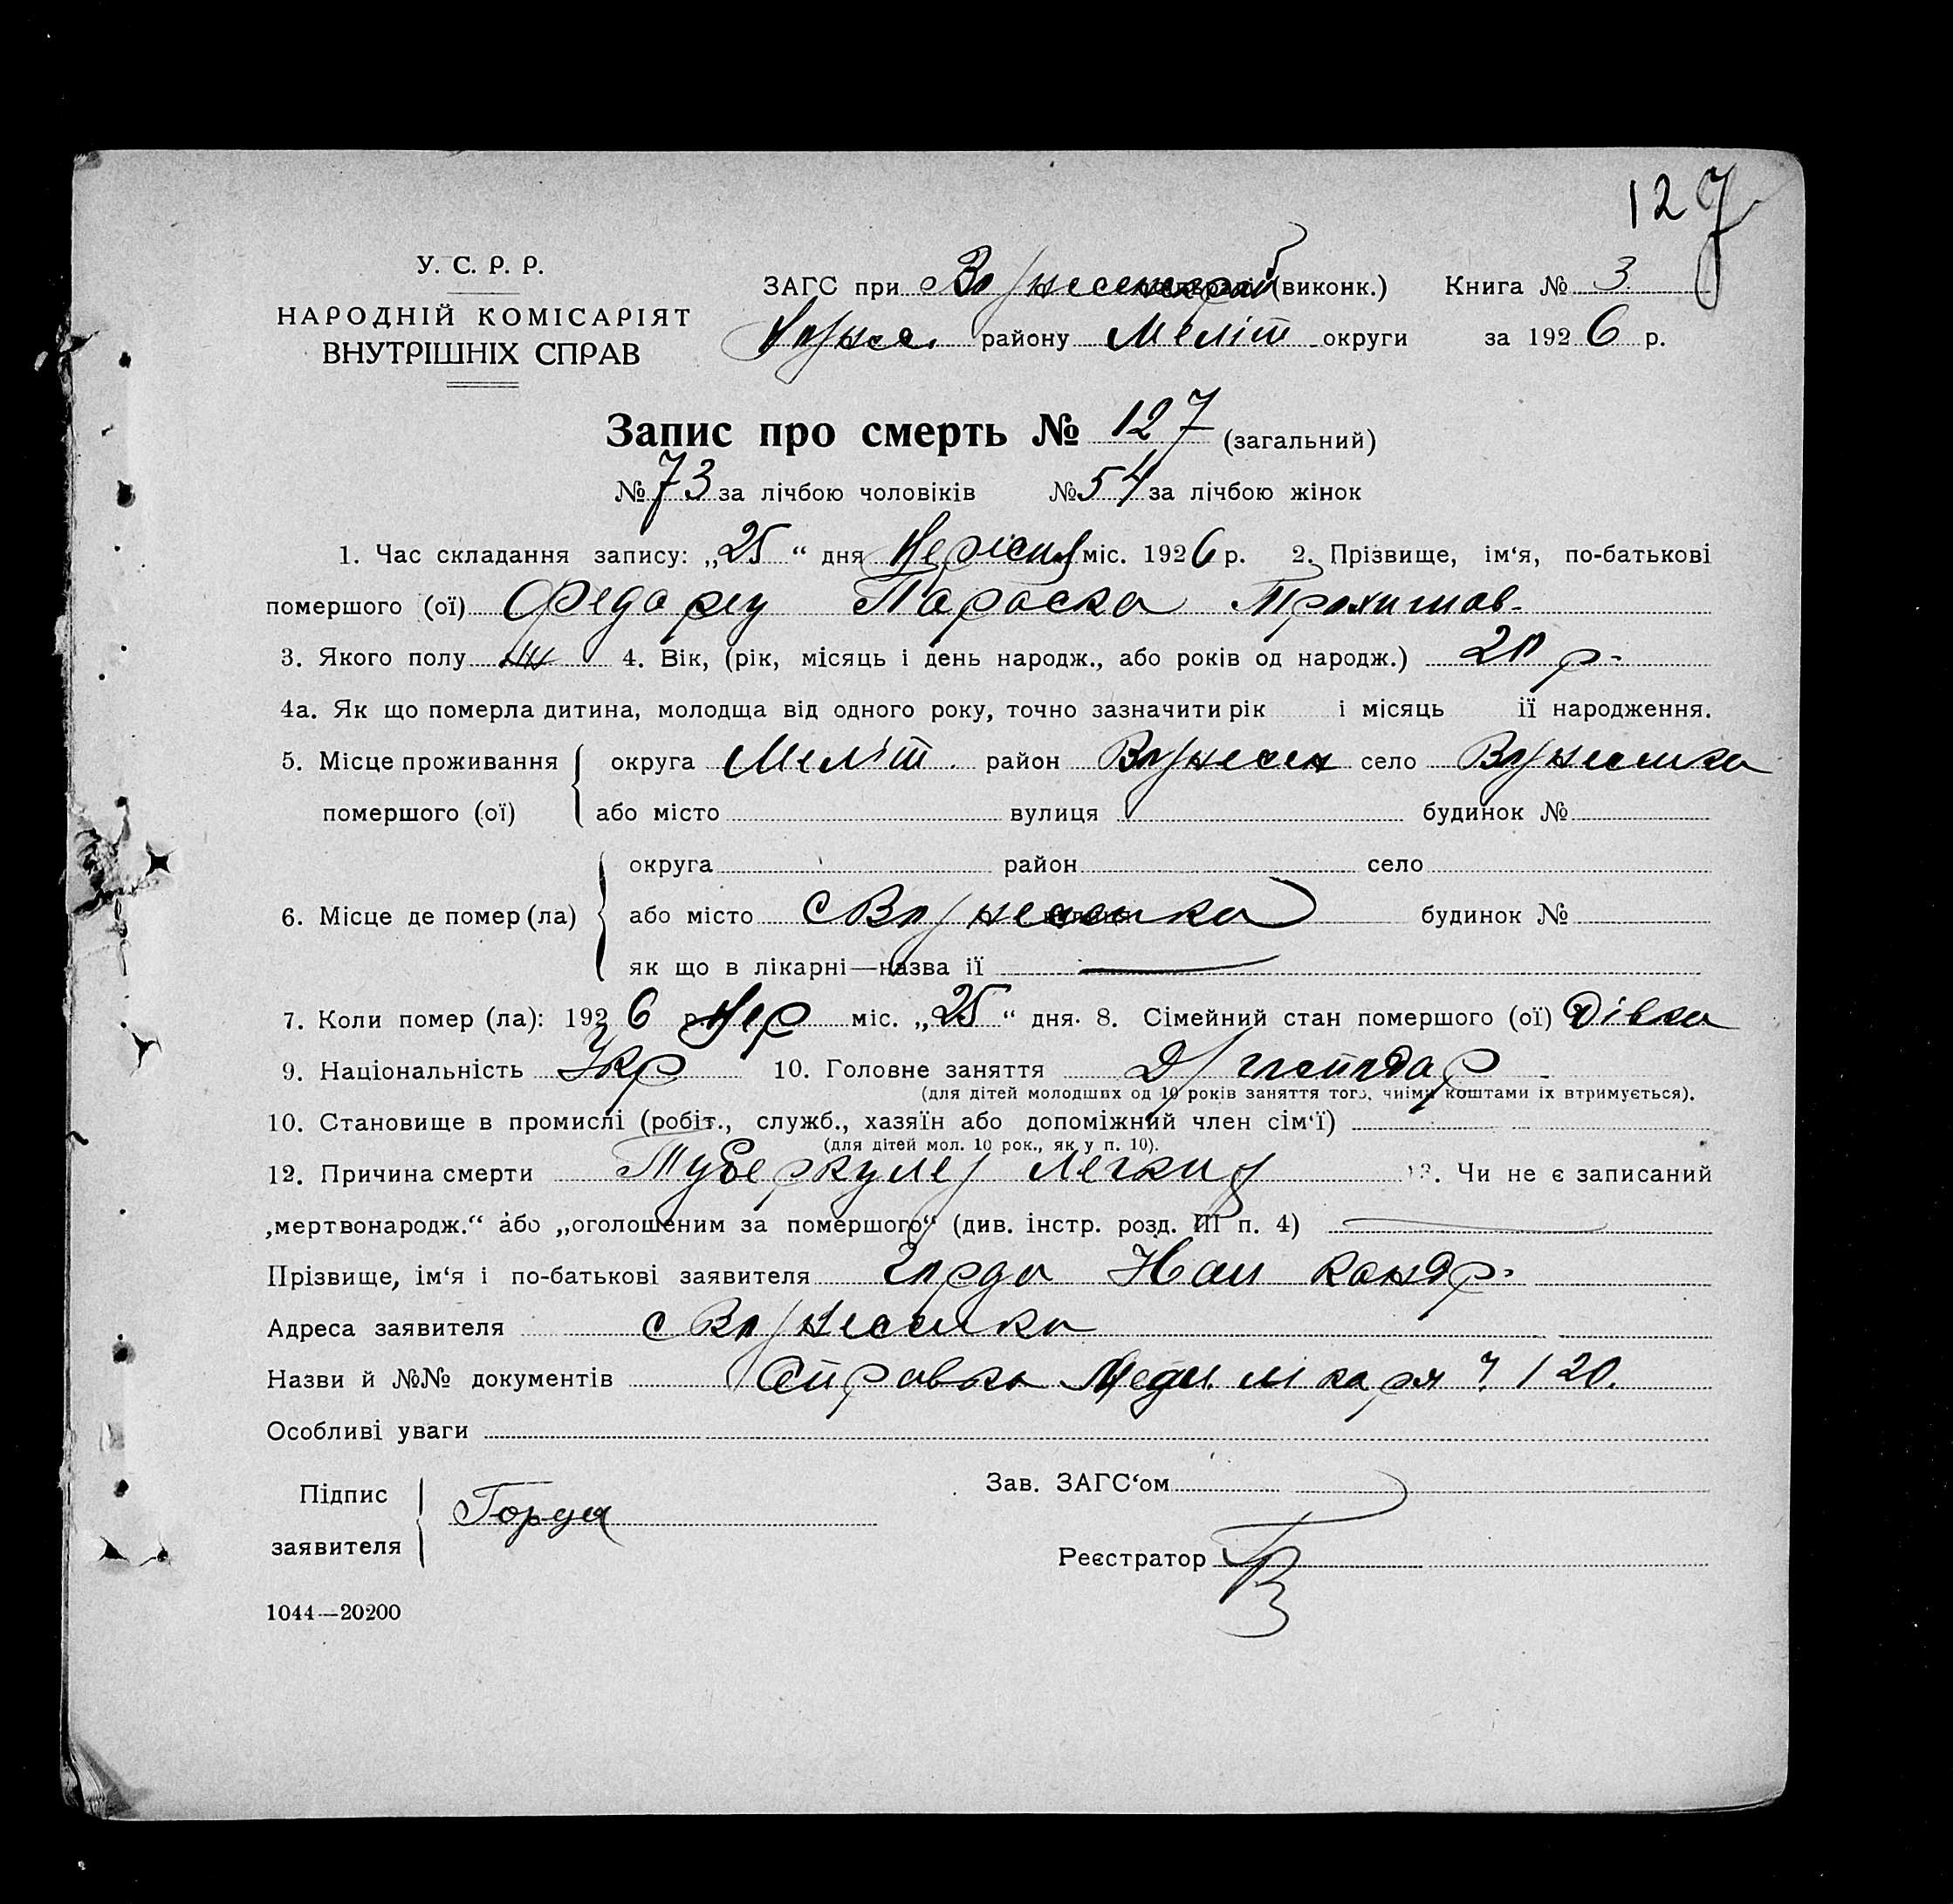 127
У. С. Р. Р.
НАРОДНІЙ КОМІСАРІЯТ
ВНУТРІШНІХ СПРАВ
ЗАГС при (виконк.) Книга № 3
району Меліт округи за 1926 р.
Запис про смерть № 127 (загальний)
№ 73 за лічбою чоловіків № 54 за лічбою жінок
1. Час складання запису: „25“ дня міс. 1926 р. 2. Прізвище, ім‘я, по-батькові
помершого (ої) Федорец Параска Трохимов-
3. Якого полу ж 4. Вік, (рік, місяць і день народж., або років од народж.) 20 р-
4а. Як що померла дитина, молодща від одного року, точно зазначити рік і місяць ії народження.
5. Місце проживання округа Меліт. район Вознесен село Вознесенка
помершого (ої) або місто вулиця будинок №
округа район село
6. Місце де помер (ла) або місто с Вознесенка будинок №
як що в лікарні—назва ії
7. Коли помер (ла): 1926 р. чер міс. „25“ дня. 8. Сімейний стан помершого (ої) Дівка
9. Національність Укр 10. Головне заняття господар
(для дітей молодших од 10 років заняття того, чиіми коштами іх втримується).
10. Становище в промислі (робіт., служб., хазяїн або допоміжний член сім‘ї)
(для дітей мол. 10 рок., як у п. 10).
12. Причина смерти Туберкулез легких 13. Чи не є записаний
„мертвонародж.“ або „оголошеним за помершого“ (див. інстр. розд. III п. 4)
Прізвище, ім‘я і по-батькові заявителя Горда Кондр-
Адреса заявителя с Вознесенка
Назви й №№ документів Справка лікаря 120.
Особливі уваги
Підпис
заявителя Горда
Зав. ЗАГС‘ом
Реєстратор
1044—20200